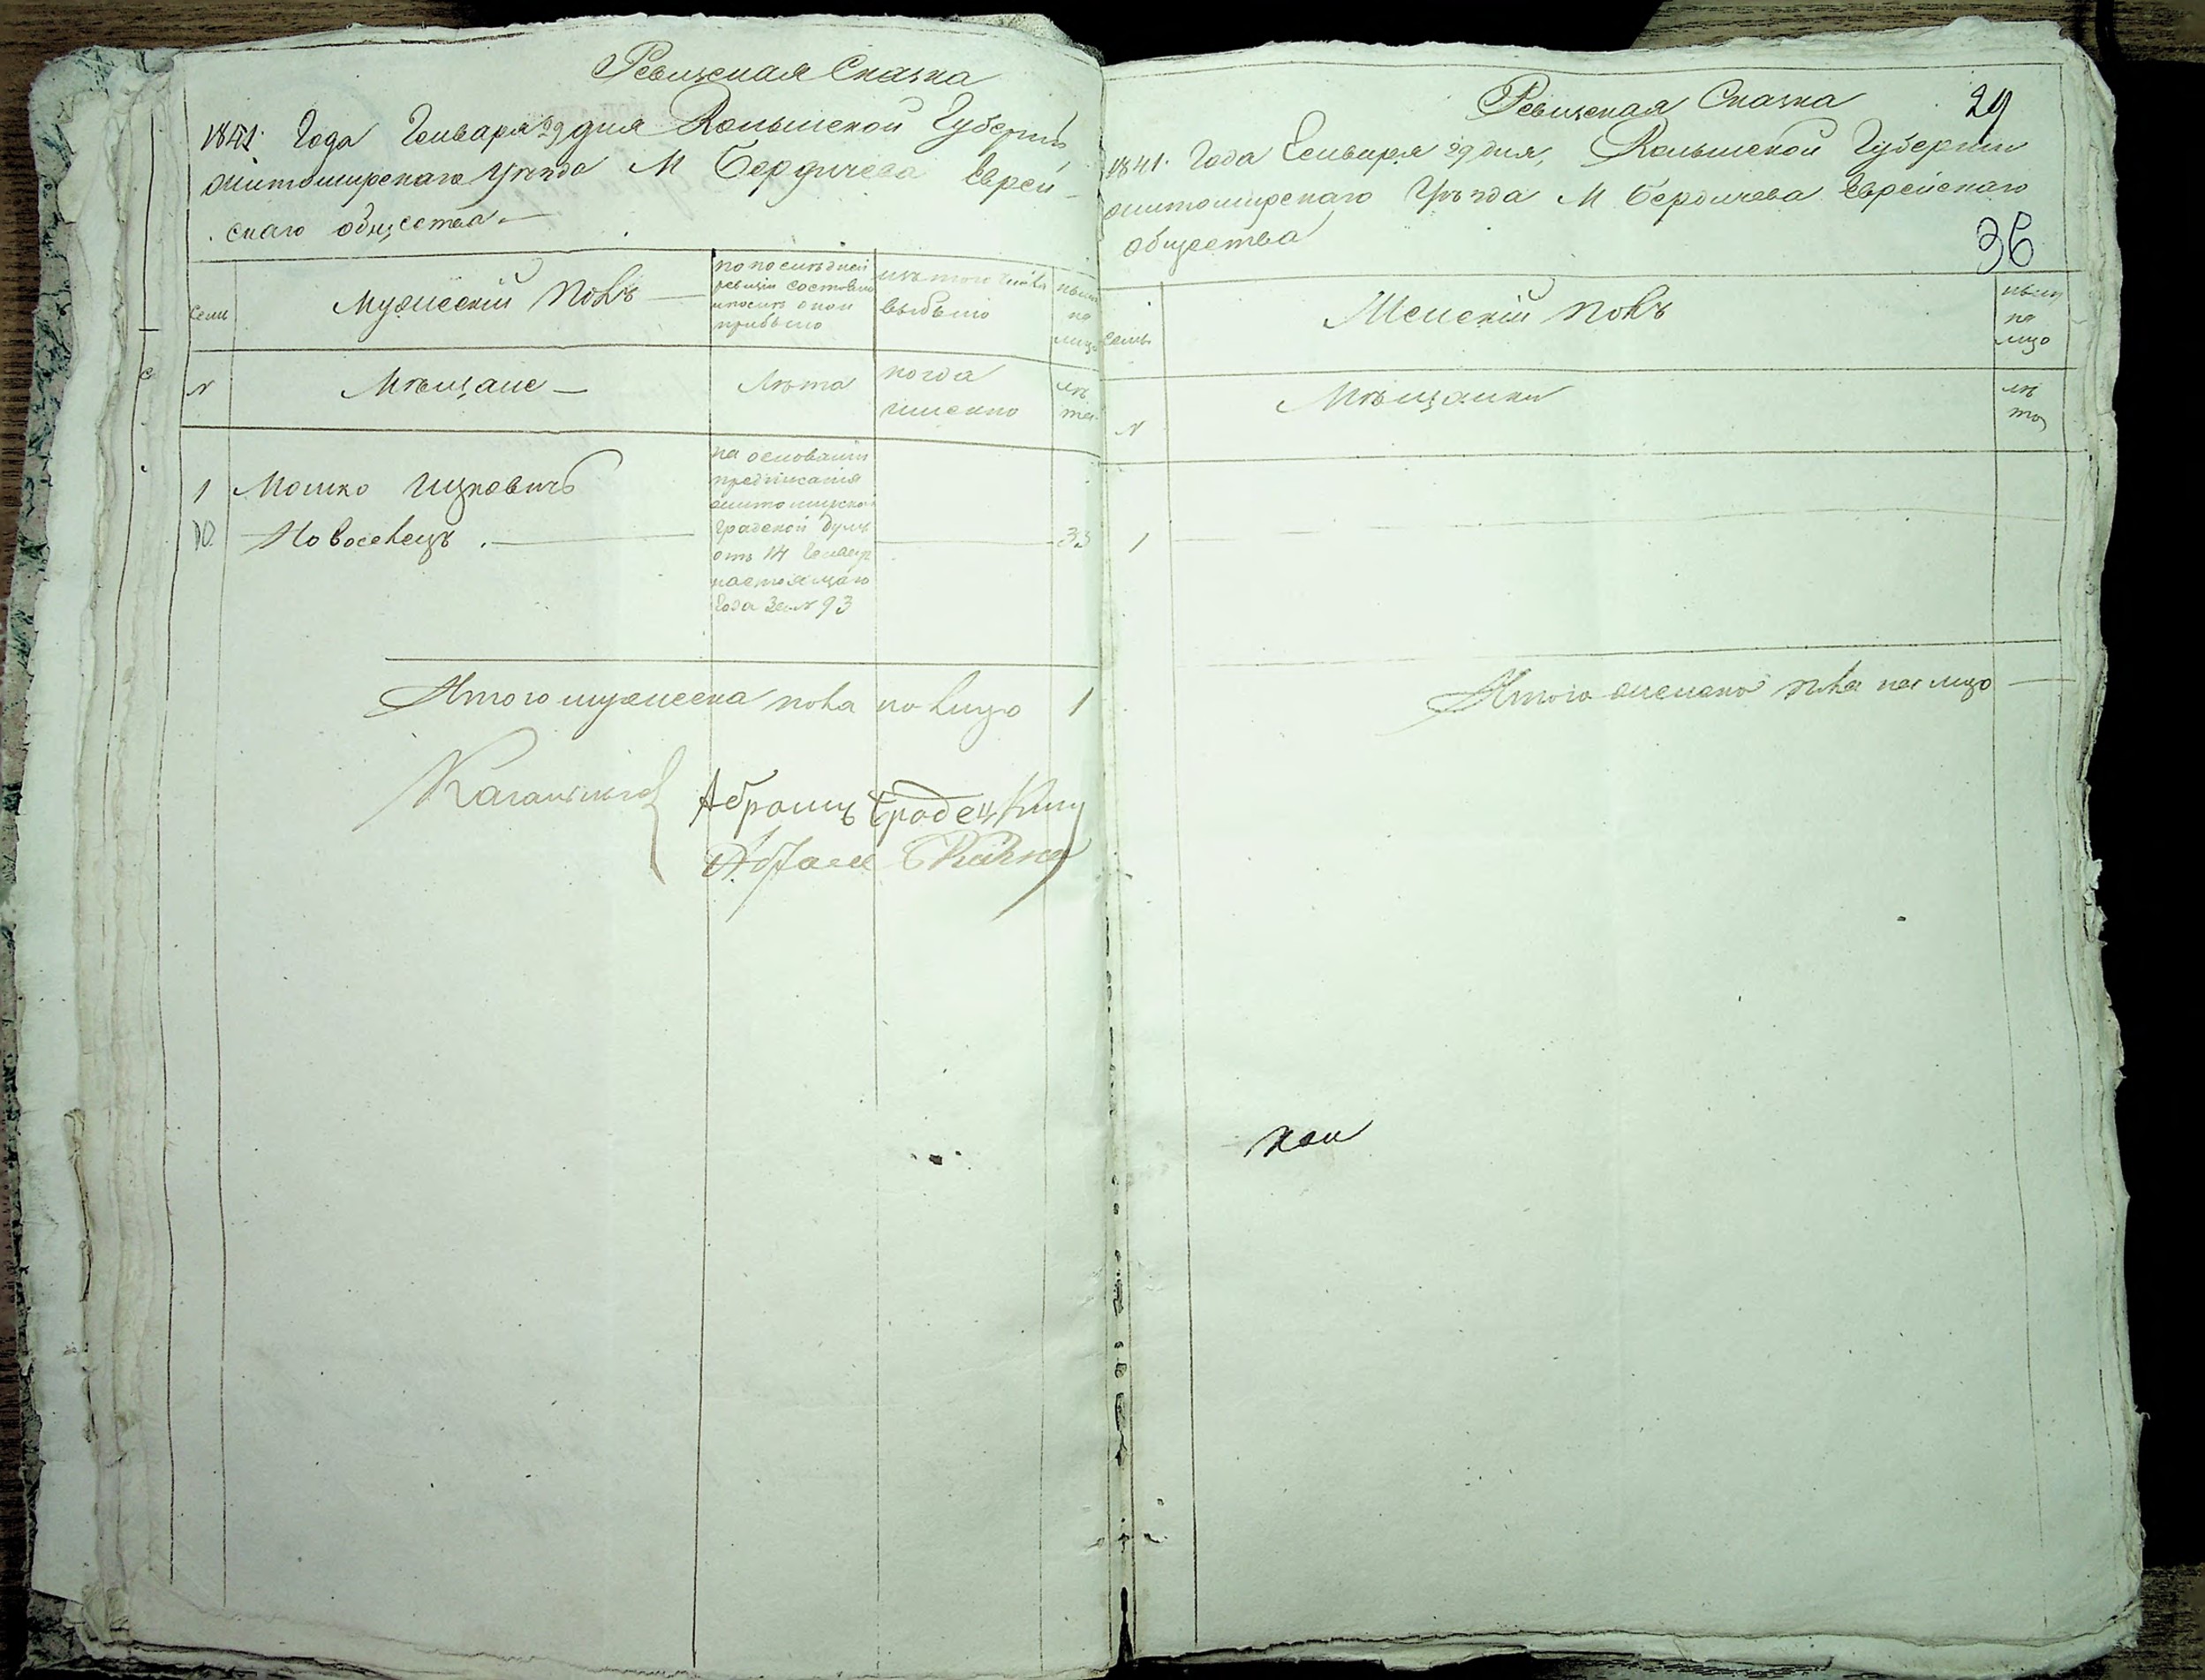 Ревизская Сказка
1841. Года Генваря 29 дня Волынской Губерніи
житомирскаго Уѣзда М Бердичева Еврей-
скаго общества
семи
Мужескій полъ
по последней
ревизіи состояло
и после оной
прибыло
изъ того числа
выбыло
ныне
на
лицо
N
Мѣщане
Лѣта
когда
именно
лѣ
та
1
Мошко Ицковичъ
Новоселецъ
на основаніи
предписанія
житомирской
Градской Думы
отъ 14 Генвар
настоящаго
Года за N 93
33
Итого мужеска пола на лицо 1
Абрамъ Бродецкий
Ревизская Сказка
29
1841. Года Генваря 29 дня, Волынской Губерніи
житомирскаго Уѣзда М Бердичева Еврейскаго
общества
36
семьи
Женскій полъ
ныне
на
лицо
N
Мѣщанки
лѣ
та
1
Итого женска пола на лицо